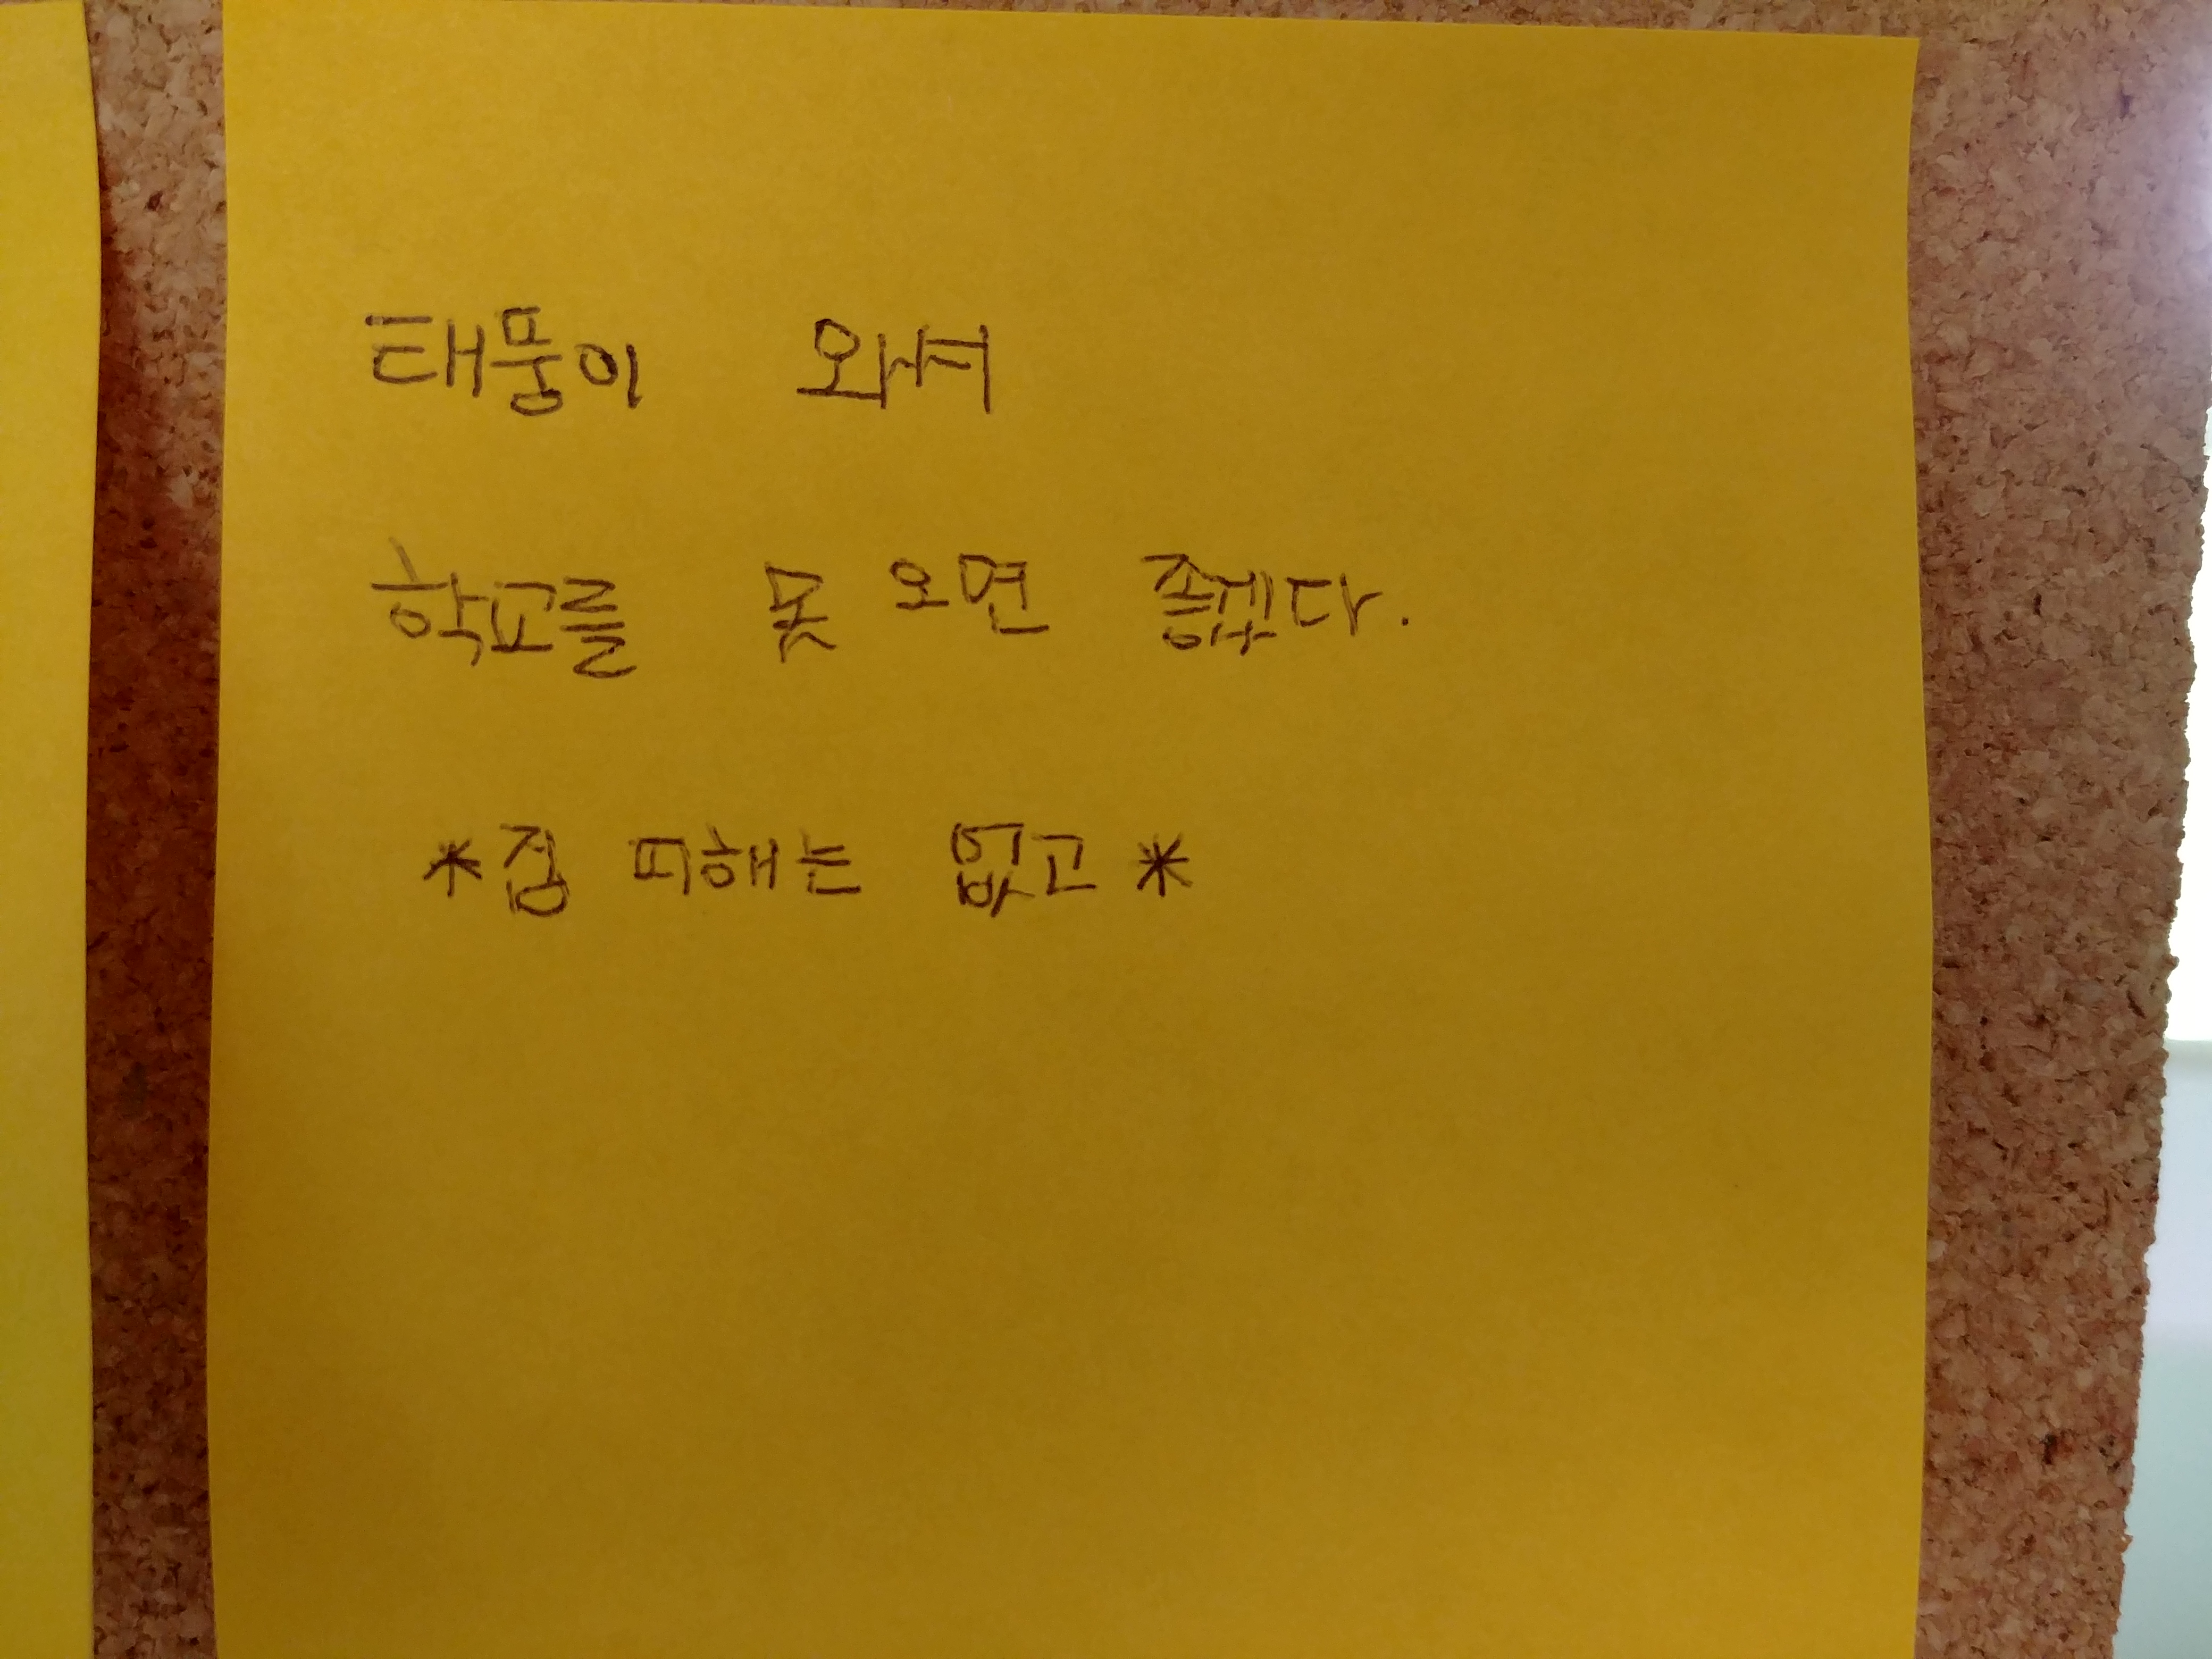 태풍이 와서
학교를 못 오면 좋겠다.
*집 피해는 없고*